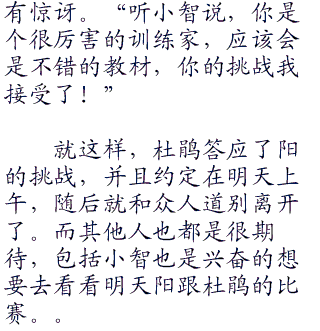 有惊讶。“听小智说，你是
个很厉害的训练家，应该会
是不错的教材，你的挑战我
接受了！”
就这样，杜鹃答应了阳
的挑战，并且约定在明天上
午，随后就和众人道别离开
了。而其他人也都是很期
待，包括小智也是兴奋的想
要去看看明天阳跟杜鹃的比
赛。。